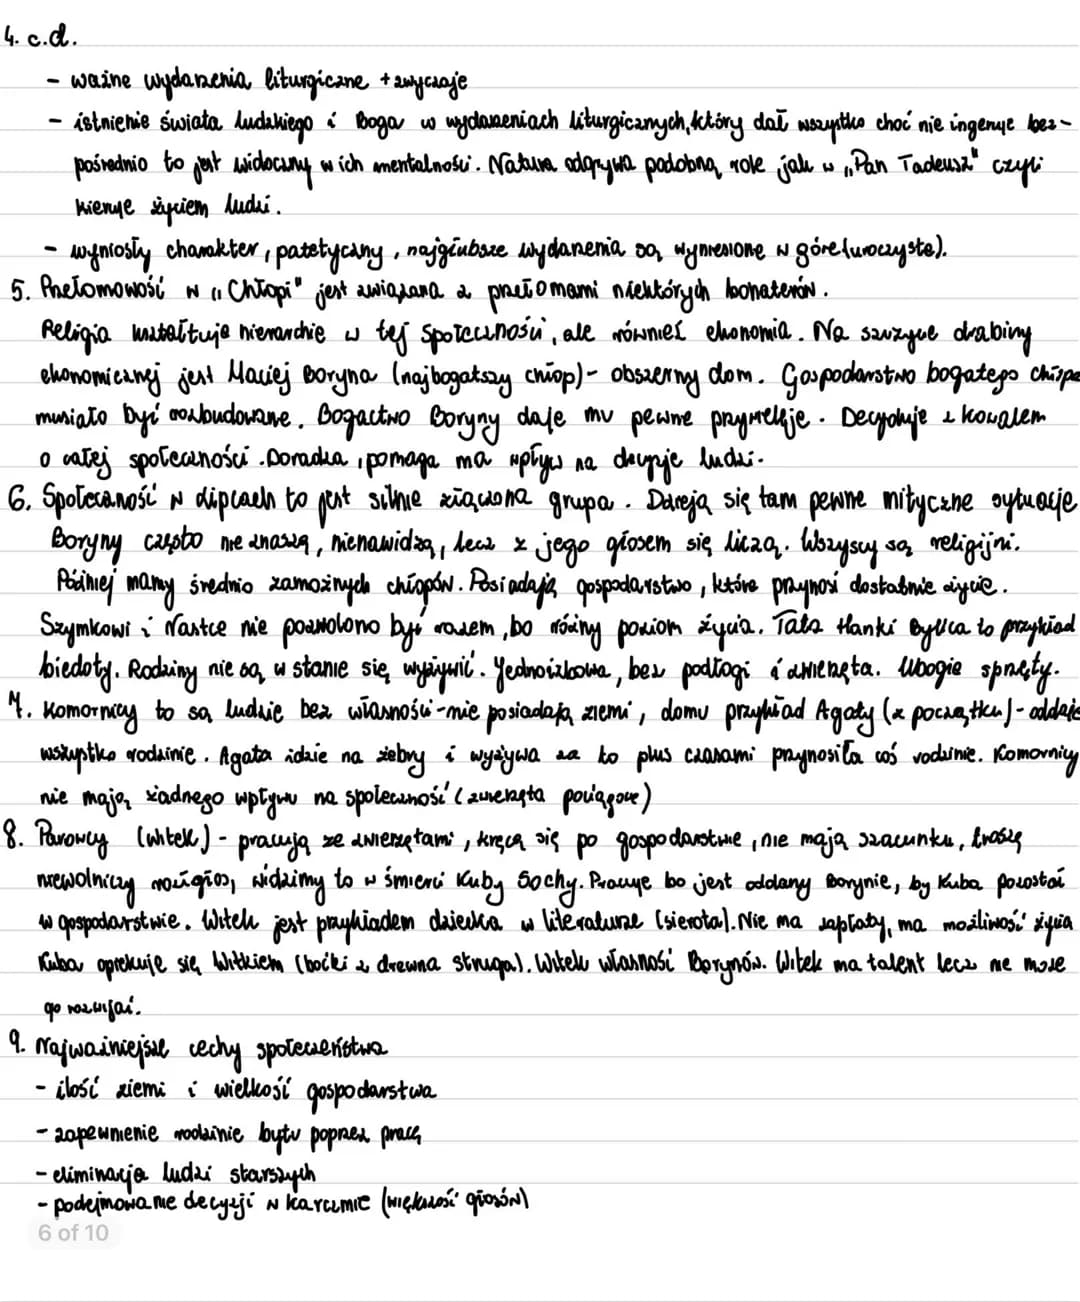 4. c.d.
- ważne wydarzenia liturgiczne + zwyczaje
- istnienie świata ludzkiego i Boga w wydarzeniach liturgicznych, który dał wszystko choć nie ingeruje bez-
pośrednio to jest widoczny w ich mentalności. Natura odgrywa podobną role jak w „Pan Tadeusz" czyli
kieruje życiem ludzi.
- wyniosły charakter, patetyczny, najgłubsze wydarzenia są wyniesione w górę (uroczyste).
5. Przełomowość w „Chłopi" jest związana z przełomami niektórych bohaterów.
Religia kształtuje hierarchię w tej społeczności, ale również ekonomia. Na szczycie drabiny
ekonomicznej jest Maciej Boryna (najbogatszy chłop) - obszerny dom. Gospodarstwo bogatego chłopa
musiało być rozbudowane. Bogactwo Boryny daje mu pewne przywileje. Decyduje z kowalem
o całej społeczności. Doradza, pomaga ma wpływ na decyzje ludzi.
6. Społeczność w Lipcach to jest silnie złączona grupa. Dzieją się tam pewne mityczne sytuacje.
Boryny często nie znoszą, nienawidzą, lecz z jego głosem się liczą. Wszyscy są religijni.
Później mamy średnio zamożnych chłopów. Posiadają gospodarstwo, które przynosi dostatnie życie.
Szymkowi i Nastce nie pozwolono być razem, bo różny poziom życia. Tata Hanki Bylica to przykład
biedoty. Rodziny nie są w stanie się wyżywić. Jednoizbowa, bez podłogi i zwierzęta. Ubogie sprzęty.
7. Komornicy to są ludzie bez własności - nie posiadają ziemi, domu przykład Agaty (z początku) - oddaje
wszystko rodzinie. Agata idzie na żebry i wyżywa za to plus czasami przynosiła coś rodzinie. Komornicy
nie mają żadnego wpływu na społeczność (zwierzęta pociągowe)
8. Parobcy (Witek) - pracują ze zwierzętami, kręcą się po gospodarstwie, nie mają szacunku,
niewolniczy widzimy to w śmierci Kuby Sochy. Pracuje bo jest oddany Borynie, by Kuba pozostał
w gospodarstwie. Witek jest przykładem dziecka w literaturze (sierota). Nie ma zapłaty, ma możliwość życia
Kuba opiekuje się Witkiem (boćki z drewna struga). Witek własność Borynów. Witek ma talent lecz nie może
go rozwijać.
9. Najważniejsze cechy społeczeństwa
- ilość ziemi i wielkość gospodarstwa
- zapewnienie rodzinie bytu poprzez pracę
- eliminacja ludzi starszych
- podejmowanie decyzji w karczmie (większość głosów)
6 of 10